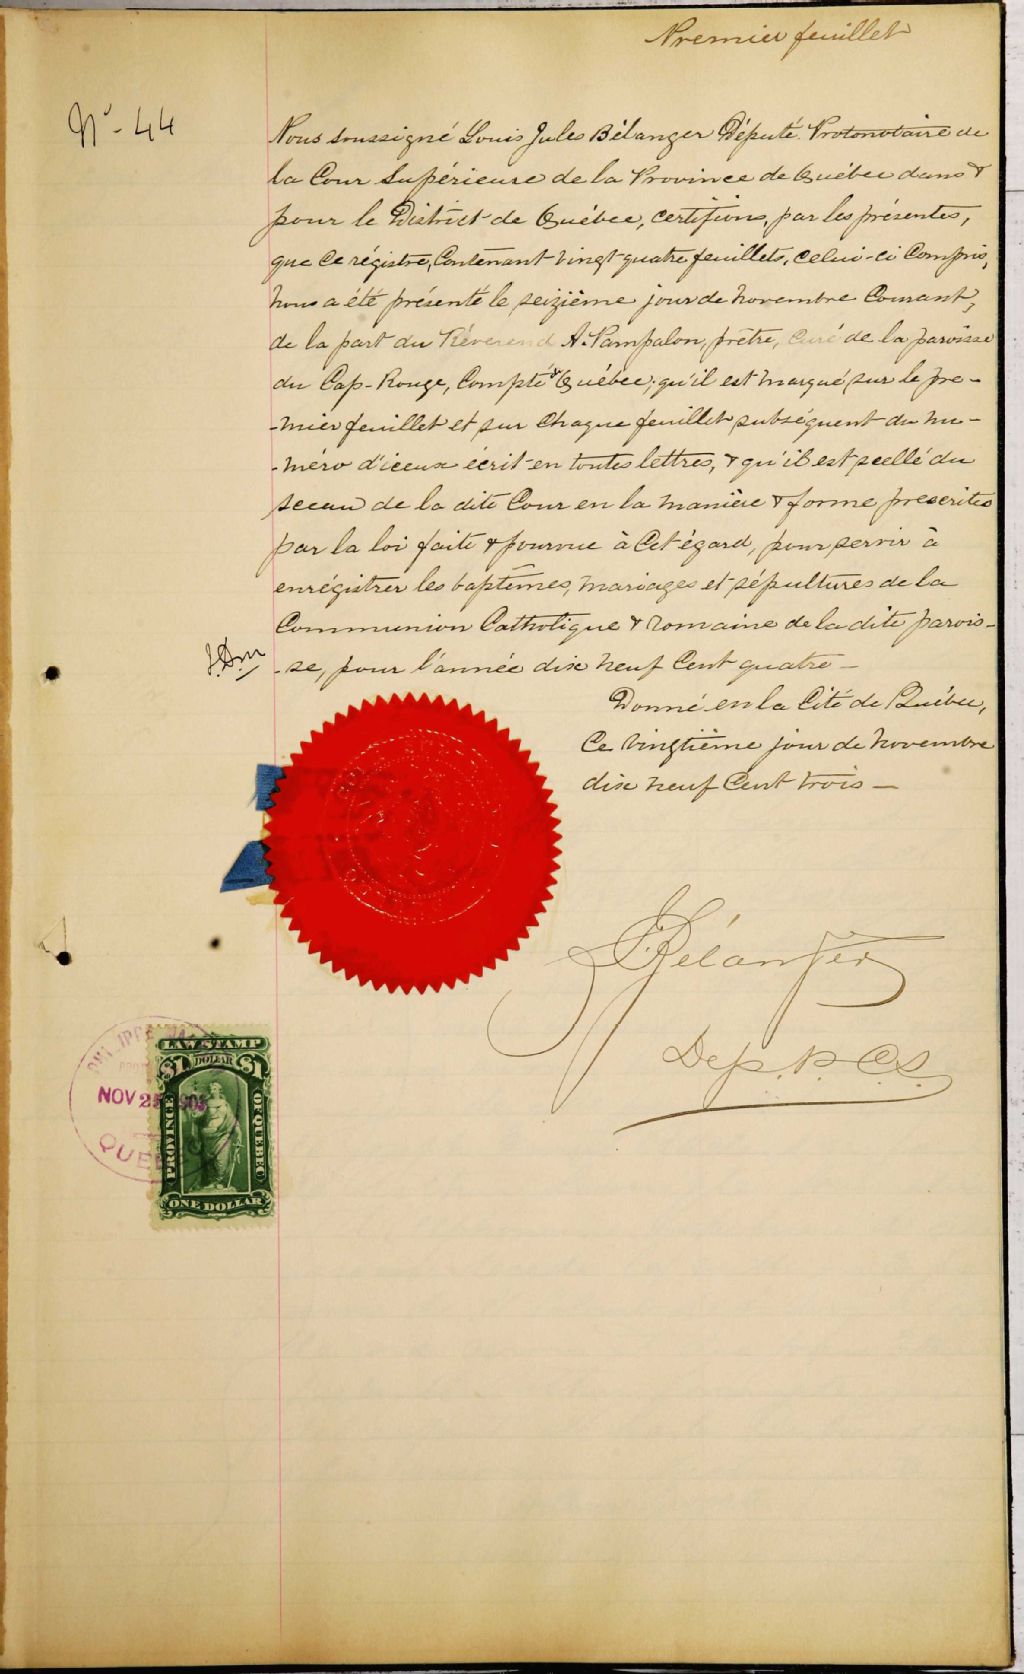 Premier feuillet
N° - 44
Nous soussigné Louis Jules Bélanger Député Protonotaire de
la Cour Supérieure de la Province de Québec dans &
pour le District de Québec, certifions, par les présentes,
que ce régistre, Contenant vingt-quatre feuillets, celui-ci Compris,
nous a été présenté le seizième jour de novembre Courant,
de la part du Révérend A. Pampalon, prêtre, Curé de la paroisse
du Cap-Rouge, Compté & Québec; qu'il est marqué sur le pre-
-mier feuillet et sur Chaque feuillet subséquent du nu-
-méro d'iceux écrit en toutes lettres, & qu'il est scellé du
sceau de la dite Cour en la manière & forme prescrites
par la loi faite & pourvue à Cet égard, pour servir à
enrégistrer les baptêmes, mariages et sépultures de la
Communion Catholique & romaine de la dite parois-
-se, pour l'année dix neuf Cent quatre -
Donné en la Cité de Québec,
Ce vingtième jour de novembre
dix neuf Cent trois -
LJBélanger
Dep. P. C. S.
LAW STAMP
$1 DOLLAR $1
PROVINCE OF QUEBEC
ONE DOLLAR
NOV 25